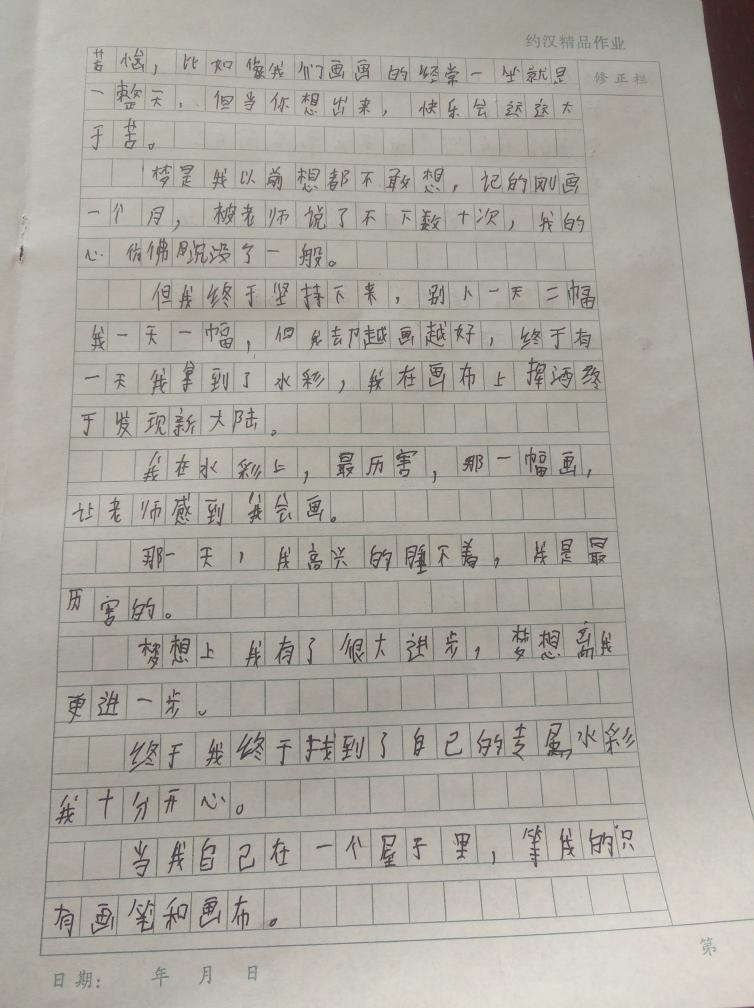 约汉精品作业
修正栏
苦恼，比如像我们画画的经常一坐就是
一整天，但当你想出来，快乐会远远大
于苦。
梦是我以前想都不敢想，记的刚画
一个月，被老师说了不下数十次，我的
心仿佛沉没了一般。
但我终于坚持下来，别人一天二幅
我一天一幅，但我却越画越好，终于有
一天我拿到了水彩，我在画布上挥洒终
于发现新大陆。
我在水彩上，最历害，那一幅画，
让老师感到我会画。
那一天，我高兴的睡不着，我是最
历害的。
梦想上我有了很大进步，梦想离我
更进一步。
终于我终于找到了自己的专属水彩
我十分开心。
当我自己在一个屋子里，等我的只
有画笔和画布。
第
日期： 年 月 日